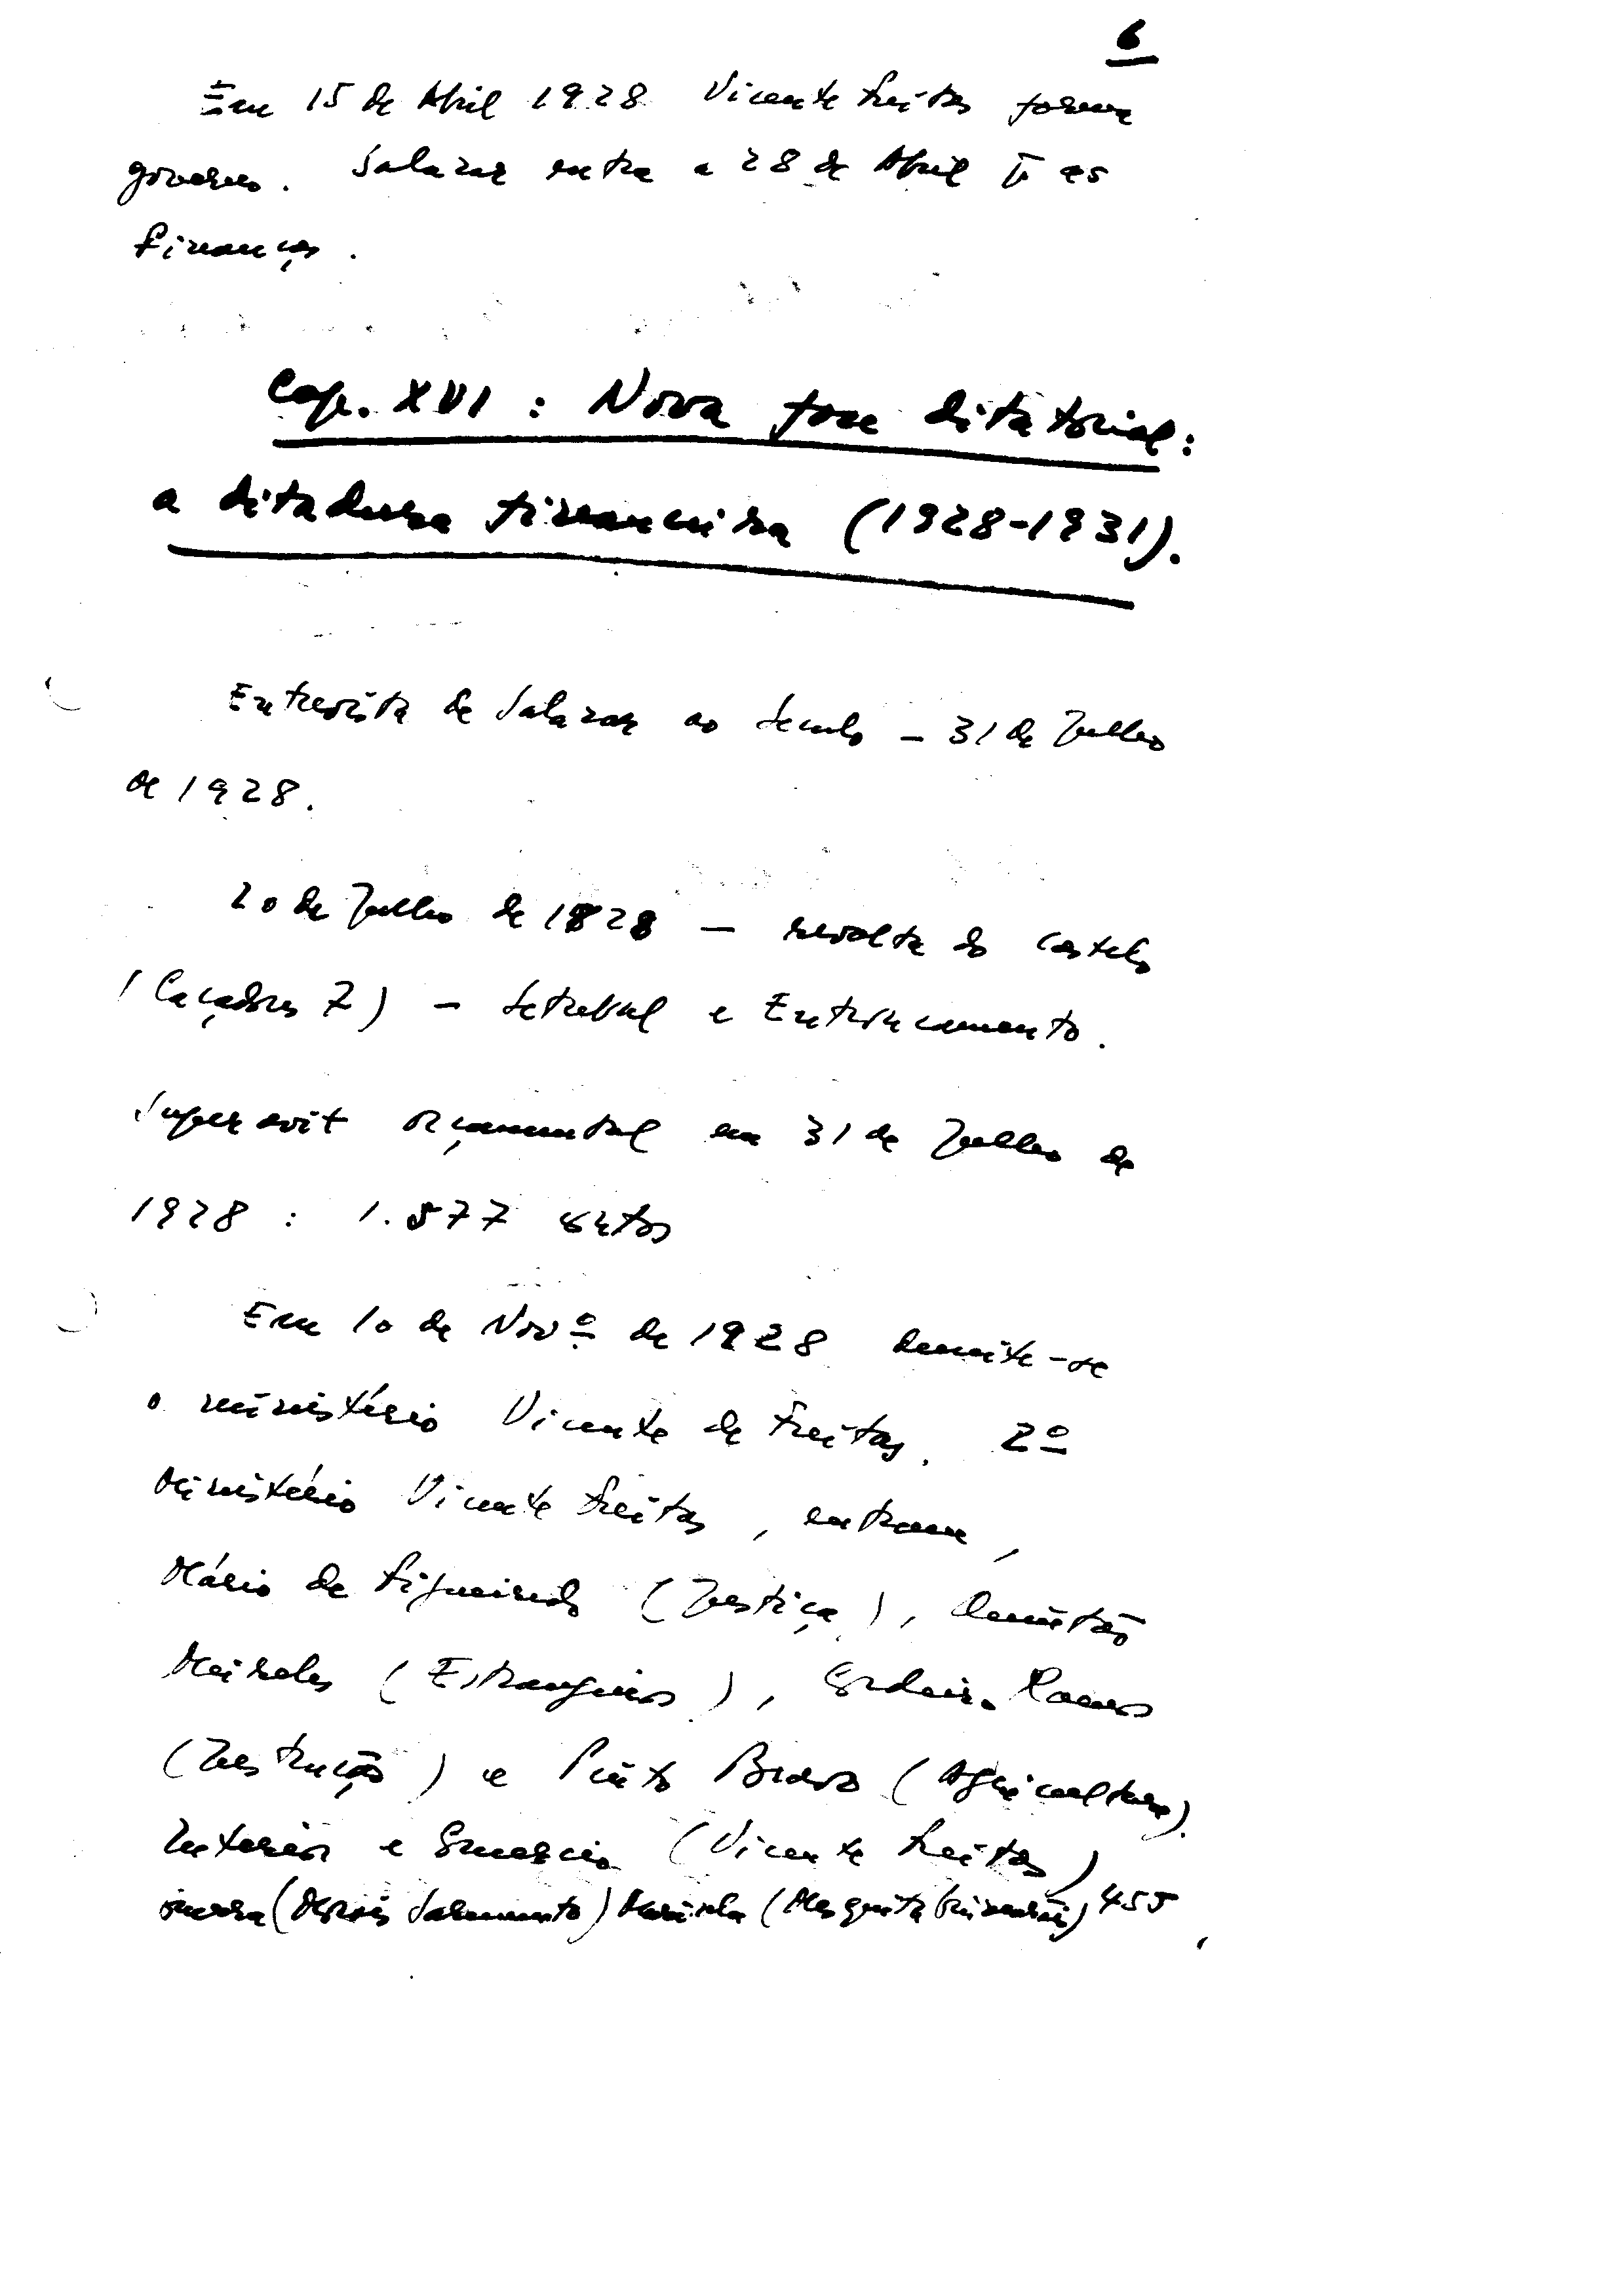 6
Em 15 de Abril 1928 Vicente Freitas forma
governo. Salazar entra a 28 de Abril p. as
Finanças.
Cap. XVI : Nova fase ditatorial:
a ditadura financeira (1928-1931).
Entrevista de Salazar ao Século - 31 de Julho
de 1928.
20 de Julho de 1928 - revolta do Castelo
(Caçadores 7) - Setúbal e Entroncamento.
Superavit orçamental em 31 de Julho de
1928 : 1.577 contos
Em 10 de Novº de 1928 demite-se
o ministério Vicente de Freitas. 2º
Ministério Vicente Freitas, entram,
Mário de Figueiredo (Justiça),
Meireles (Estrangeiros), Cordeiro Ramos
(Instrução) e Pinto (Agricultura).
Interior e (Vicente Freitas)
Guerra (Morais Sarmento) Marinha (Mesquita Guimarães) 455